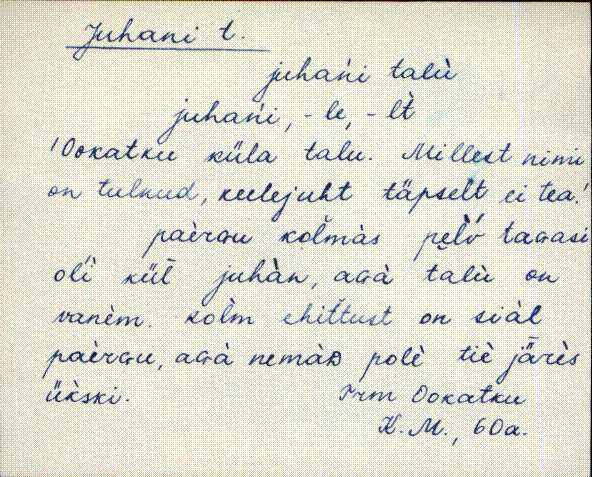 Juhani t.
juhańi talù
juhańi, -le, -lt̀
'Ookatku küla talu. Millest nimi
on tulnud, keelejuht täpselt ei tea.'
paèrɢu kol̆màs pel̆v taɢasi
olì kül̆ juhàn, aɢà talù on
vanèm. kolm̀ ehit̆tust on siàl
paèrɢu, aɢà nemàᴅ polè tiè järès
ük̀ski.
Irm Ookatku
K. M., 60a.